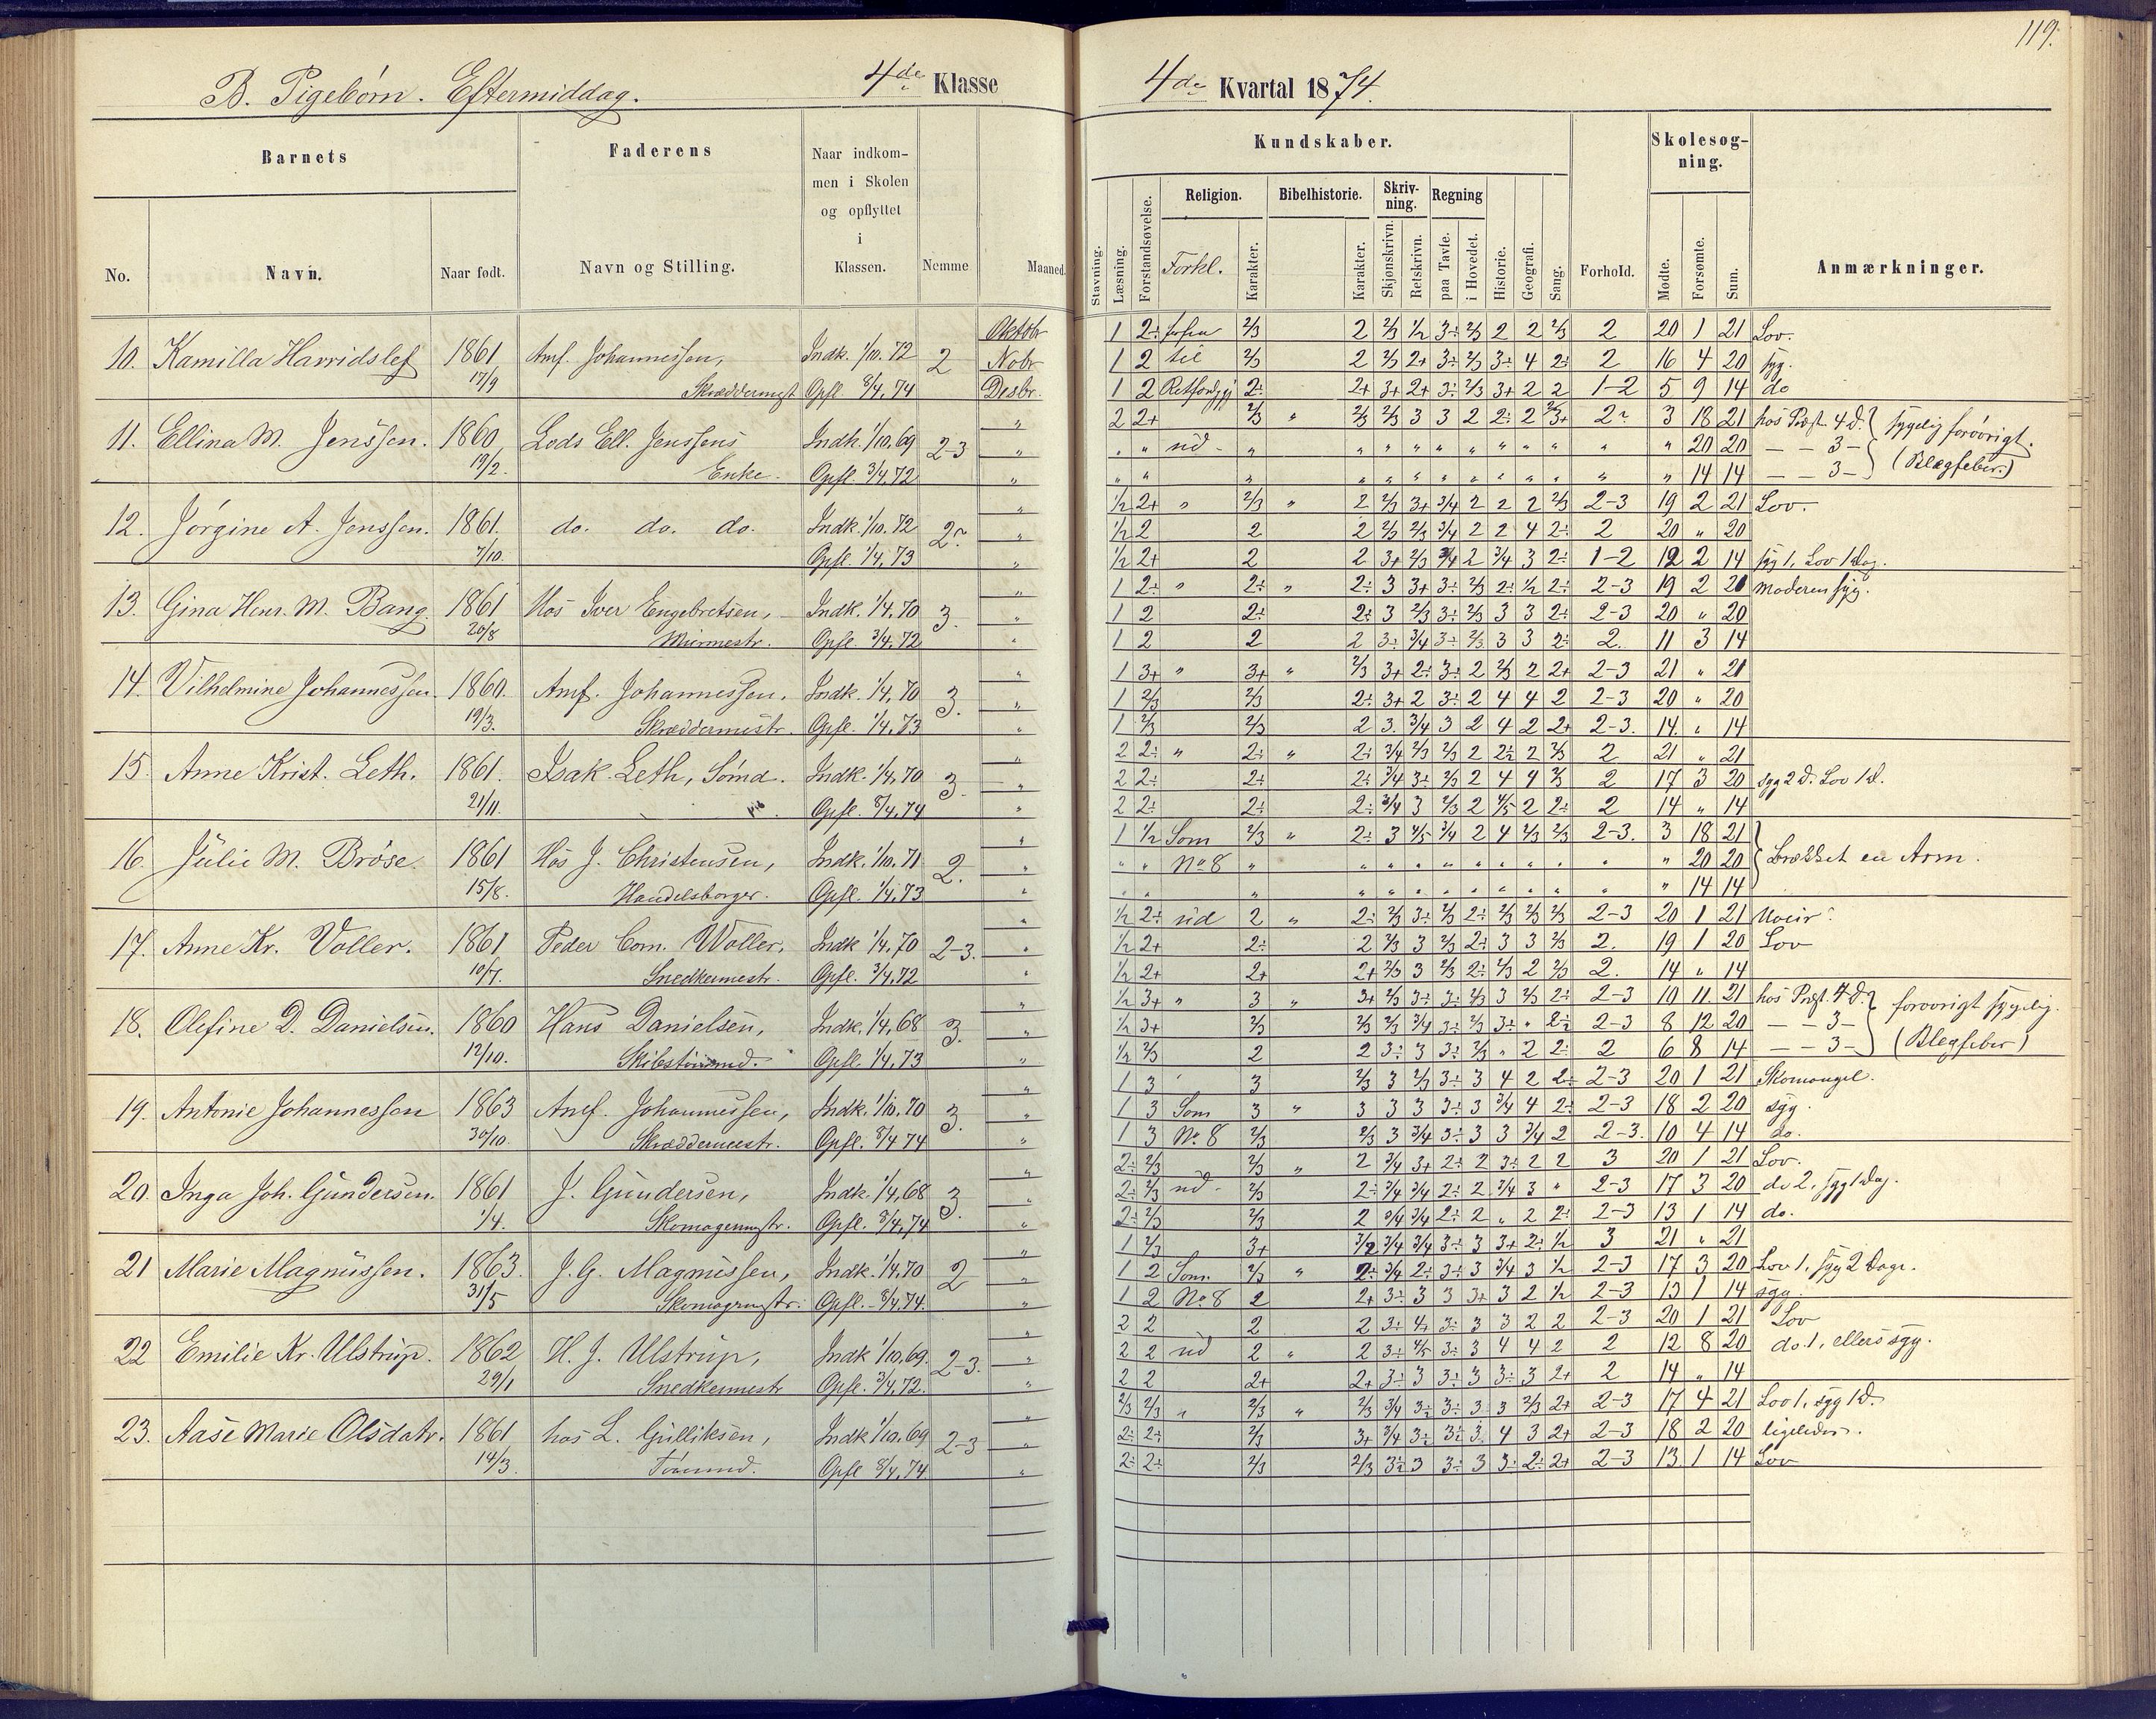 119.
B. Pigebørn. Eftermiddag. 4de Klasse
4de Kvartal 1874.
Barnets Faderens Naar indkom-
men i Skolen
og opflyttet
i
Klassen.
No. Navn. Naar født. Navn og Stilling. Nemme Maaned.
Kundskaber. Skolesøg-
ning.
Stavning. Læsning. Forstandsøvelse. Religion. Bibelhistorie. Skriv-
ning. Regning
Forkl. Karakter. Karakter. Skjønskrivn. Retskrivn. paa Tavle. i Hovedet. Historie. Geografi. Sang. Forhold. Mødte. Forsømte. Sum. Anmærkninger.
Oktobr 1 2÷ forfra 2/3 2 2/3 1/2 3÷ 2/3 2 2 2/3 2 20 1 21 Lov.
10. Kamilla Harridslef 1861 Amf. Johannessen, Indk. 1/10.72 2 Nobr 1 2 til 2/3 2 2/3 2+ 3÷ 2/3 3÷ 4 2÷ 2 16 4 20 syg.
17/9 Skræddermest Opfl. 8/4.74 Desbr. 1 2 2÷ 2+ 3+ 2+ 3÷ 2/3 3+ 2 2 1-2 5 9 14 do
" 2 2+ 2/3 " 2/3 2/3 3 3 2 2÷ 2 3 18 21 hos Præst. 4 d. sygelig forøvrigt.
11. Ellina M. Jenssen. 1860 Lods Ell. Jenssens Indk. 1/10.69 2-3 " " " ud - " " " " " " " " " " " 20 20 — — 3 —
19/2. Enke. Opfl. 3/4.72 " " " " " " " " " " " " " " " 14 14 — — 3 — (Blægfeber.)
" 1/2 2+ " 2/3 " 2 2/3 3+ 3/4 2 2 2 2/3 2-3 19 2 21 Lov.
12. Jørgine A. Jenssen. 1861. do. do. do. Indk. 1/10.72 " 1/2 2 2 2 2/3 2/3 3/4 2 2 4 2÷ 2 20 " 20
7/10. Opfl. 1/4.73 " 1/2 2+ 2 2 3+ 2/3 3/4 2 3/4 3 2÷ 1-2 12 2 14 syg 1, Lov 1 Dag.
" 1 2÷ " 2÷ " 2÷ 3 3+ 3÷ 2/3 2÷ 1/2 2÷ 2-3 19 2 21 Moderen syg.
13. Gina Henr. M. Bang. 1861 Hos Iver Engebretsen, Indk. 1/4.70 3. " 1 2 2÷ 2÷ 3 2/3 3÷ 2/3 3 3 2÷ 2-3 20 " 20
20/8 Murmestr. Opfl. 3/4.72 " 1 2 2 2 3÷ 3/4 3÷ 2/3 3 3 2÷ 2. 11 3 14
" 1 3+ " 3+ " 2/3 3+ 2÷ 3÷ 2 2/3 2 2+ 2-3 21 " 21
14. Vilhelmine Johannessen. 1860. Amf. Johannessen, Indk. 1/4.70 3. " 1 2/3 2/3 2÷ 3+ 2 3÷ 2 4 4 2 2-3 20 " 20
19/3. Skræddermestr. Opfl. 1/4.73 " 1 2/3 2/3 2 3. 3/4 3 2 4 2 2+ 2-3. 14. " 14
" 2 2÷ " 2÷ " 2÷ 3/4 2/3 2/3 2 2÷ 2 2/3 2 21 " 21
15. Anne Krist. Leth. 1861. Isak Leth, Sömd. Indk. 1/4.70 3. " 2 2÷ 2÷ 2÷ 3/4 3÷ 2/3 2 4 4 2/3 2 17 3 20 syg 2 d. Lov 1 d.
21/11. Opfl. 8/4.74 " 2 2÷ 2÷ 2÷ 3/4 3 2/3 2 4/5 2 2÷ 2 14 " 14
" 1 1/2 Som 2/3 " 2÷ 3 4/5 3/4 2 4 2/3 2/3 2-3. 3 18 21
16. Julie M. Brøse. 1861 Hos J. Christensen, Indk. 1/10.71 2. " " " No 8 " " " " " " " " " " " 20 20 brækket en Arm.
15/8. Handelsborger. Opfl. 1/4.73 " " " " " " " " " " " " " " 14 14
" 1/2 2÷ ud 2 " 2÷ 2/3 3÷ 2/3 2÷ 2/3 2/3 2/3 2-3 20 1 21 Uveir.
17. Anne Kr. Voller. 1861 Peder Corn. Woller, Indk 1/4.70 2-3. " 1/2 2+ 2÷ 2 2/3 3 2/3 2÷ 3 3 2/3 2. 19 1 20 Lov
10/7. Snedkermestr. Opfl. 3/4.72 " 1/2 2+ 2+ 2+ 2/3 3 2/3 2÷ 2/3 2 2/3 2. 14 " 14
" 1/2 3+ " 3 " 3+ 2/3 3÷ 3÷ 2/3 3 2/3 2÷ 2-3 10 11. 21 hos Præst. 4 d. forøvrigt sygelig.
18. Olefine D. Danielsen. 1860 Hans Danielsen, Indk. 1/4.68 3. " 1/2 3+ 2/3 2/3 2/3 3/4 3÷ 2/3 3÷ " 2÷ 2-3 8 12 20 — — 3 —
12/10. Opfl. 1/4.73 " 1/2 2/3 2 2 3÷ 3 3÷ 2/3 " 2 2÷ 2 6 8 14 — — 3 — (Blegfeber)
" 1 3 3 2/3 3 2/3 3÷ 3 4 2 2÷ 2-3 20 1 21 Skomangel.
19. Antonie Johannessen 1863 Amf. Johannessen, Indk. 1/10.70 3. " 1 3 Som 3 " 3 3 3 3÷ 3 3/4 4 2÷ 2-3 18 2 20 syg.
30/10. Skræddermestr. Opfl. 8/4 74 " 1 3 No 8 2/3 2/3 3 3/4 3÷ 3 3 3/4 2 2-3. 10 4 14 do.
" 2÷ 2/3 2/3 " 2 3/4 3+ 2÷ 2 3÷ 2 2 3 20 1 21 Lov.
20. Inga Joh. Gundersen. 1861 J. Gundersen, Indk. 1/4.68 3. " 2÷ 2/3 ud - 2/3 2÷ 3/4 3/4 2÷ 2 3/4 3 " 2-3 17 3 20 do 2, syg 1 Dag.
1/4. Skomagermstr. Opfl. 8/4.74 " 2÷ 2/3 2/3 2 3/4 3/4 2÷ 2 " 2 2÷ 2-3 13 1 14 do.
" 1 2/3 3+ 3/2 3/4 3/4 3÷ 3 3+ 2÷ 1/2 3 21 " 21
21 Marie Magnussen. 1863. J. G. Magnussen, Indk. 1/4.70 2 " 1 2 Som 2/3 " 2÷ 3/4 2÷ 3÷ 3 3/4 3 1/2 2-3 17 3 20 Lov 1, syg 2 Dage.
31/5 Skomagrmstr. Opfl. 8/4.74. " 1 2 No 8 2 2+ 3÷ 3 3 3+ 3 2 1/2 2-3 13 1 14 syg
" 2 2 2 2 3÷ 4 3÷ 3 3 2 2 2-3 20 1 21 Lov
22 Emilie Kr. Ulstrup. 1862 H. J. Ulstrup, Indk 1/10.69. 2-3. " 2 2 ud 2 " 2 3÷ 4/5 3÷ 3 4 4 2 2 12 8 20 do 1, ellers syg.
29/1 Snedkermestr Opfl. 3/4.72. " 2 2 2+ 2+ 3÷ 3 3÷ 3 3÷ 3 2+ 2 14 " 14
" 2/3 2/3 " 2/3 " 2/3 3/4 3÷ 3÷ 3 3 2/3 2+ 2-3 17 4 21 Lov 1, syg 1 d.
23. Aase Marie Olsdatr. 1861 hos L. Gulliksen, Indk 1/10.69 2-3 " 2÷ 2÷ 2/3 3+ 3/4 3÷ 3÷ 3 4 3 2+ 2-3 18 2 20 ligeledes.
14/3. Opfl 8/4.74 " 2÷ 2÷ 2/3 2/3 3÷ 3 3÷ 3 3÷ 2÷ 2+ 2-3 13 1 14 Lov